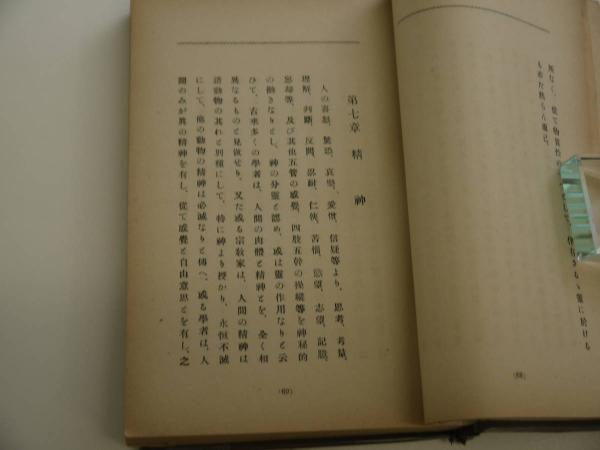 所なく、從て物質性の
も亦た然らん而已。
靈に於ける
(68)
第七章 精神
人の喜怒、驚恐、哀樂、愛憎、信疑等より、思考、考量、
理解、判斷、反問、忍耐、仁俠、苦惱、慾望、志望、記憶、
忘却等、及び其他五管の感覺、四肢五幹の操縱等を神秘的
の働きなりとし、神の分靈と認め、或は靈の作用なりと云
ひて、古來多くの學者は、人間の肉體と精神とを、全く相
異なるものと見做せり、又た或る宗敎家は、人間の精神は
諸動物の其れと別種にして、特に神より授かり、永恒不滅
にして、他の動物の精神は必滅なりと傳へ、或る學者は、人
間のみが眞の精神を有し、從て感覺と自由意思とを有し、之
(69)